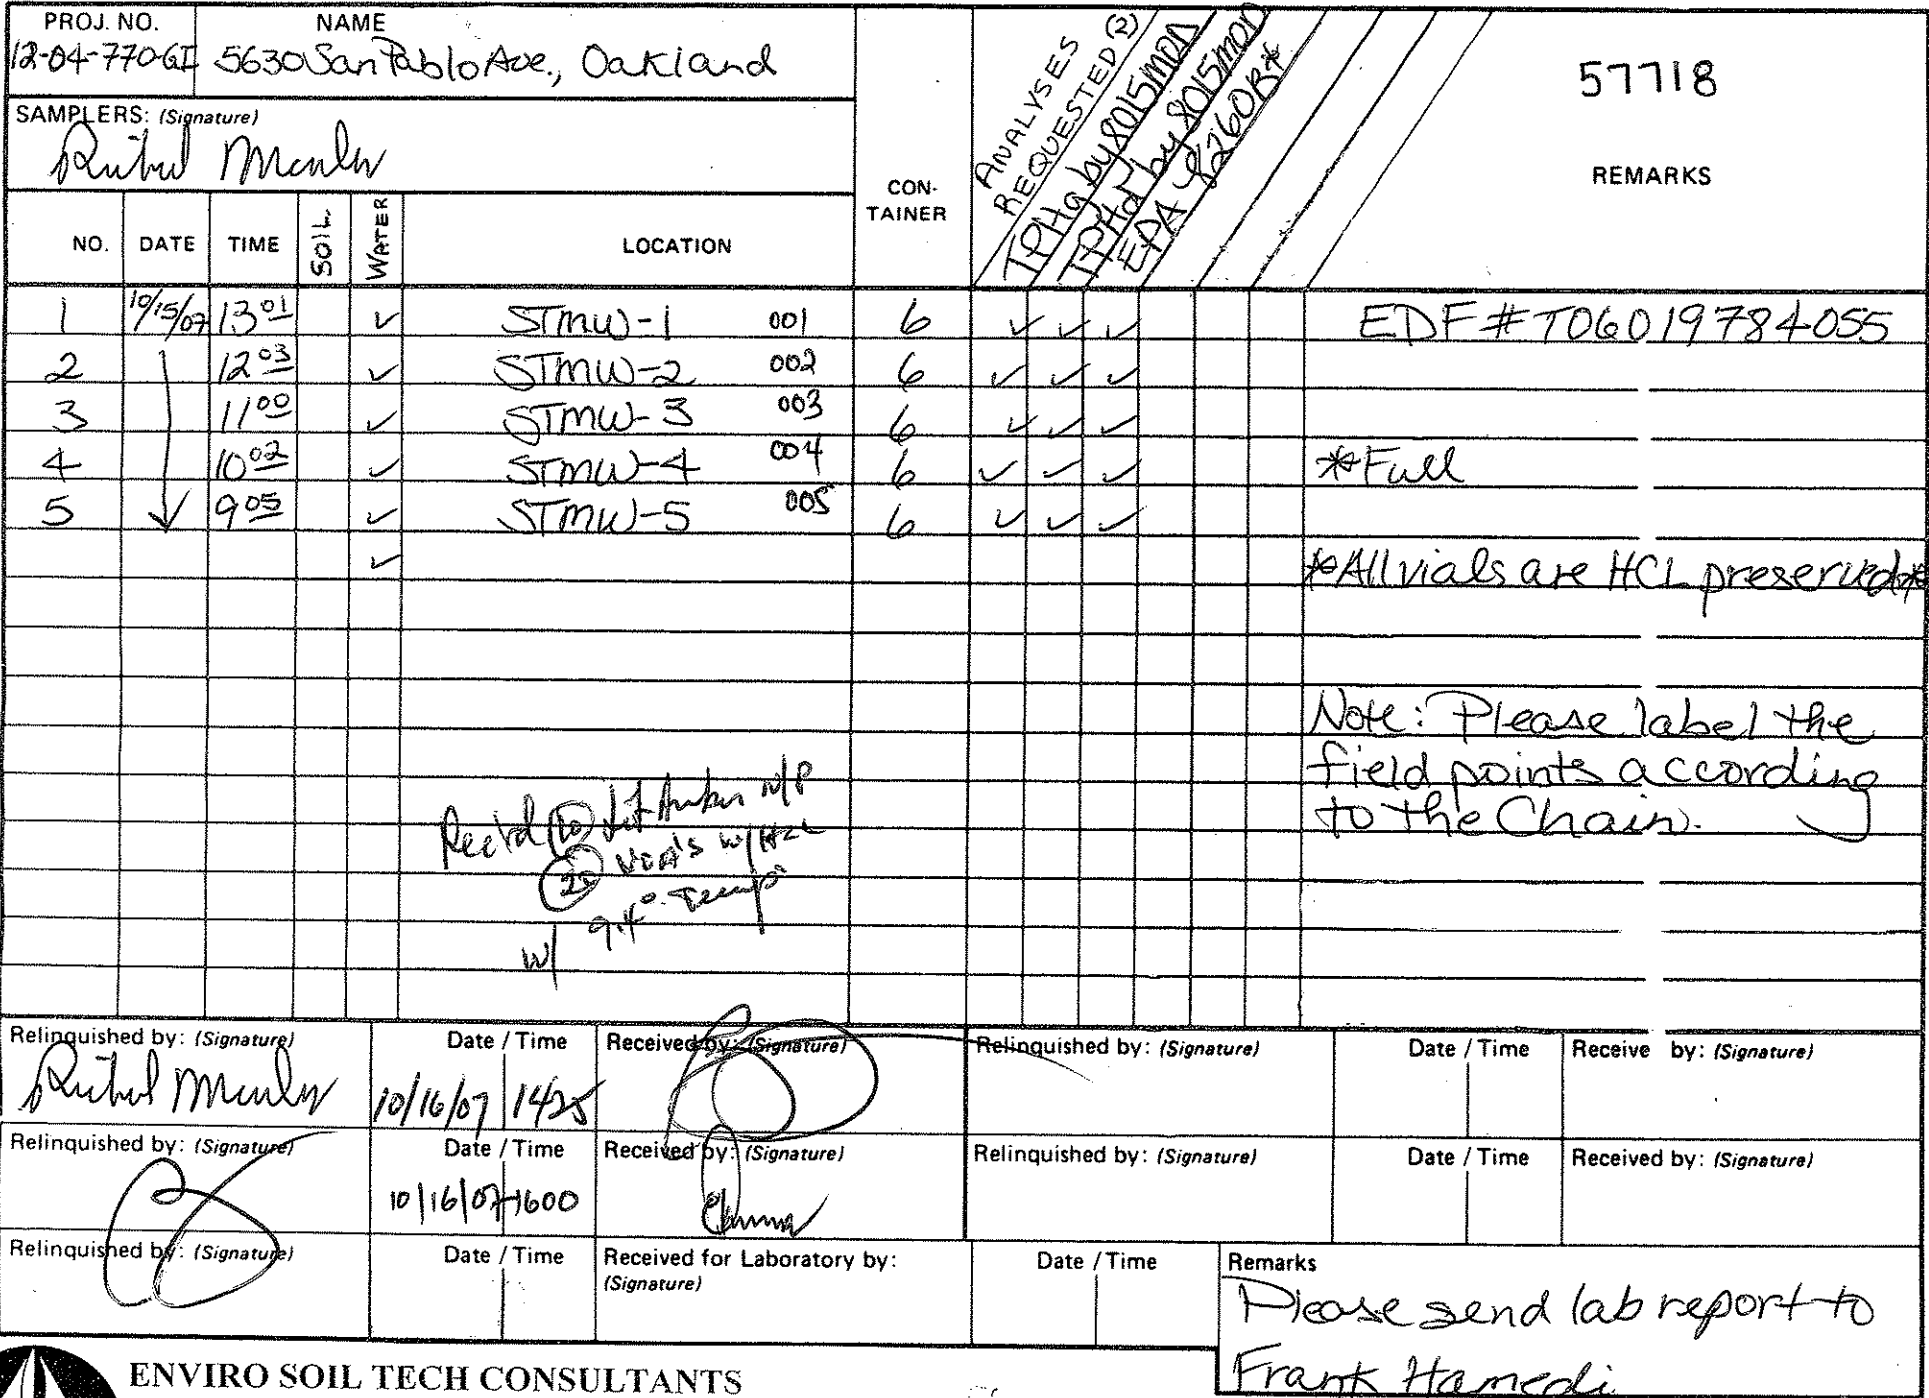 PROJ. NO. NAME
12-04-770-GI 5630 San Pablo Ave., Oakland
SAMPLERS: (Signature)
ANALYSES REQUESTED (2)
TPHg by 8015MOD
TPHd by 8015MOD
EPA 8260B*
57718
REMARKS
CON-
TAINER
NO. DATE TIME SOIL WATER LOCATION
1 10/15/07 13 01 ✓ STMW-1 001 6 ✓ ✓ ✓ EDF # T06019784055
2 12 03 ✓ STMW-2 002 6 ✓ ✓ ✓
3 11 00 ✓ STMW-3 003 6 ✓ ✓ ✓
4 10 02 ✓ STMW-4 004 6 ✓ ✓ ✓ *Full
5 9 05 ✓ STMW-5 005 6 ✓ ✓ ✓
✓ *All vials are HCL preserved*
Note: Please label the
field points according
to the Chain.
Rec'vd (10) Lit Amber N/P
(20) VOA's w/HCL
w/ 9.4° Temp
Relinquished by: (Signature) Date / Time Received by: (Signature) Relinquished by: (Signature) Date / Time Receive by: (Signature)
10/16/07 1425
Relinquished by: (Signature) Date / Time Received by: (Signature) Relinquished by: (Signature) Date / Time Received by: (Signature)
10/16/07 1600
Relinquished by: (Signature) Date / Time Received for Laboratory by:
(Signature) Date / Time Remarks
Please send lab report to
Frank Hamedi
ENVIRO SOIL TECH CONSULTANTS